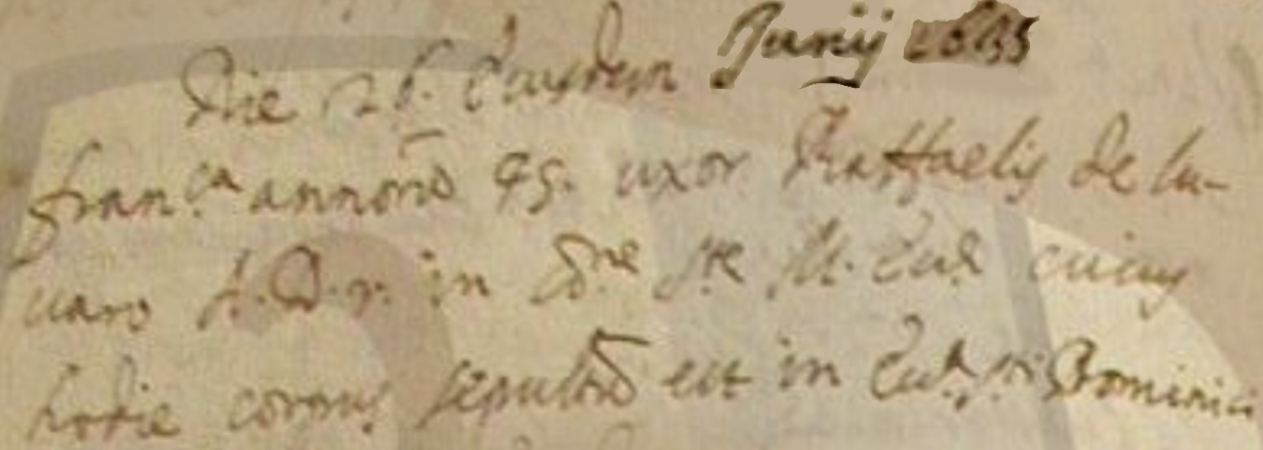 Die 26. Eiusdem Junij 1685
fran.ca annorũ 45. uxor Raffaelis de lu-
uaro A.D.r. in Cõ.ne S.te M. Eccl. cuius
hodie corpus sepultũ est in Eccl. s.ti Dominici